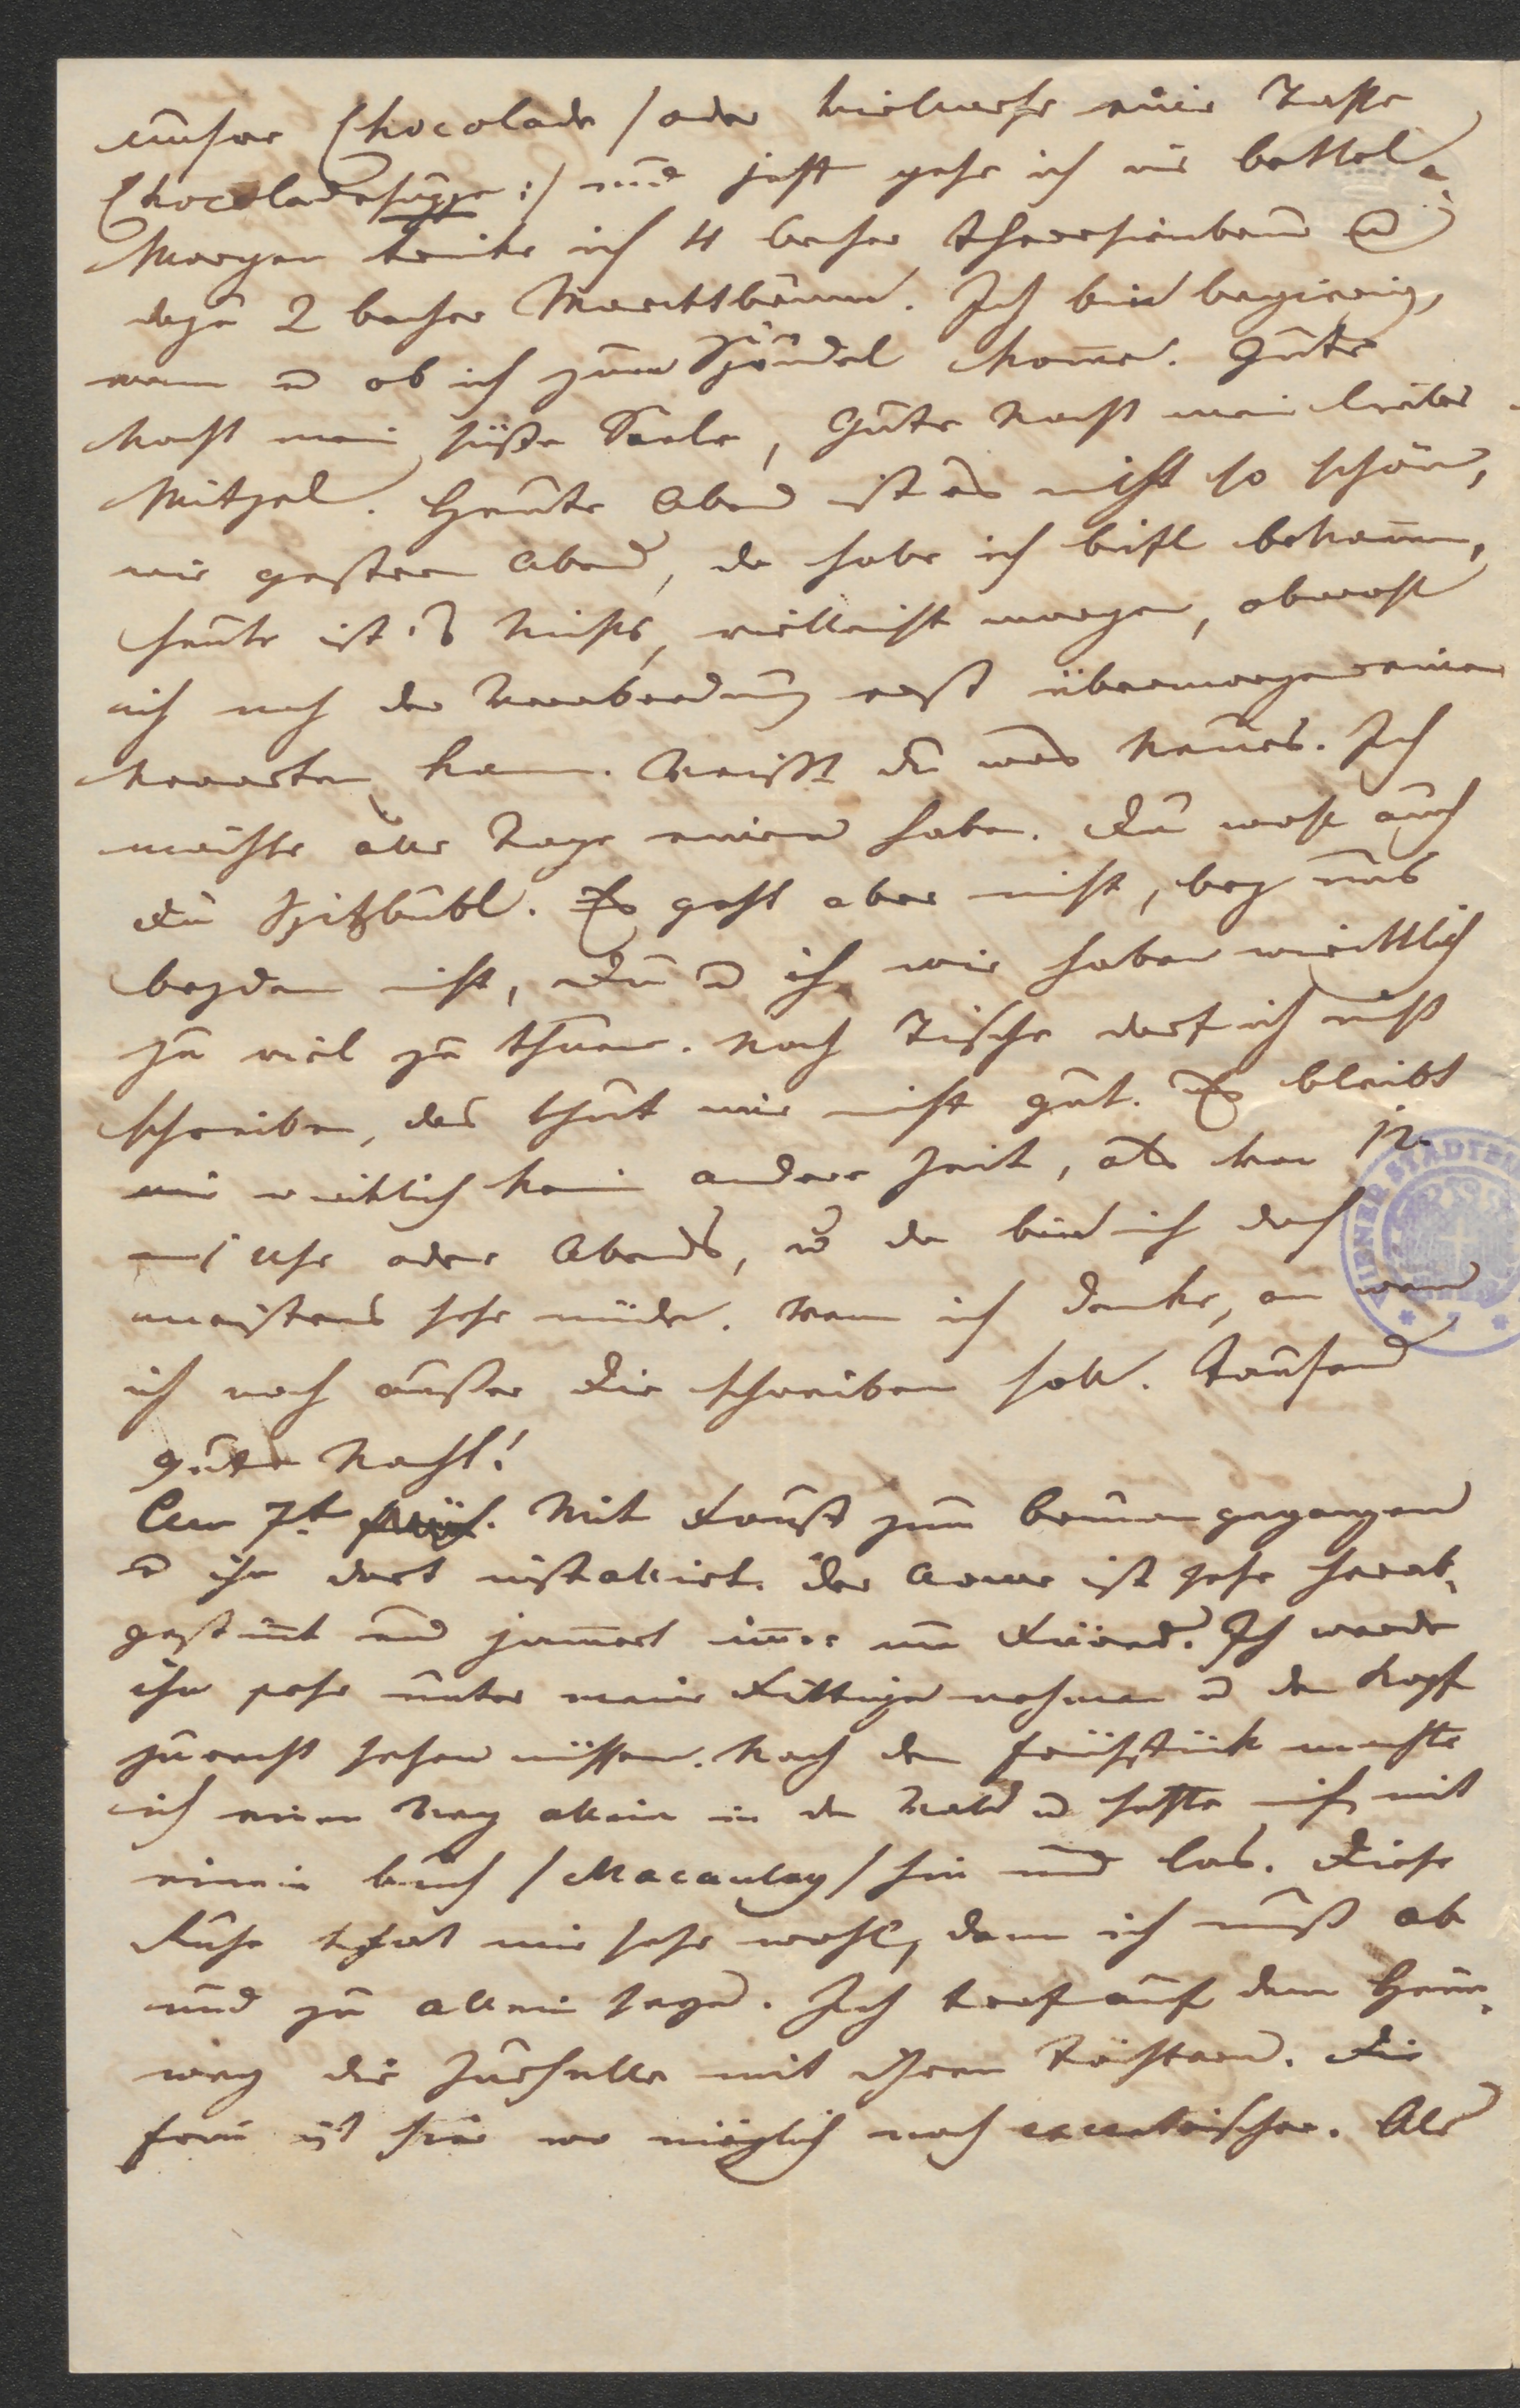 unsere Chocolade /oder vielmehr eine Tasse
Chocoladesuppe :/ und jetzt gehe ich ins bettel.
Morgen trinke ich 4 becher Theresienbrunn u
dazu 2 becher Marktbrunn. Ich bin begierig,
wann u ob ich zum Spŕudel komme. Gute
Nacht mein süße Seele, Gute Nacht mein liebes
Mitzel. Heute Abend ist es nicht so schön,
wie gestern Abend, da habe ich briefl bekommen,
heute ist's Nichts, vielleicht morgen, obwohl
ich nach der Verabredung erst übermorgen einen
erwarten kann. Weißt du was Neues. Ich
möchte alle Tage einen haben. Du wohl auch
du Spitzbübl. Es geht aber nicht, bey uns
beyden nicht, Du u ich wir haben wirklich
zu viel zu thuen. Nach Tische darf ich nicht
schreiben, das thut mir nicht gut. Es bleibt
mir wirklich kein andere Zeit, als von 12
– 1 Uhr oder Abends, u da bin ich doch
meistens sehr müde. Wenn ich denke, an wen
ich noch außer Dir schreiben soll. Tausend
gute Nacht!
Am 7t früh. Mit Faust zum brunnen gegangen
u ihn dort installirt. Der Arme ist sehr herab¬
gestimmt und jammert immer um. Ich werde
ihn sehr unter meine Fittige nehmen u den Kopf
zurecht setzen müssen. Nach dem Frühstück machte
ich einen Weg allein in den Wald u setzte mich mit
einem buch /Macaulay/ hin und las. Diese
Ruhe that mir sehr wohl, denn ich muß ab
und zu allein seyn. Ich traf auf dem Heim¬
weg die mit ihren Töchtern. Die
Frau ist hier wo möglich noch excentrischer. Als
WIENER STADTBI
* 7 *